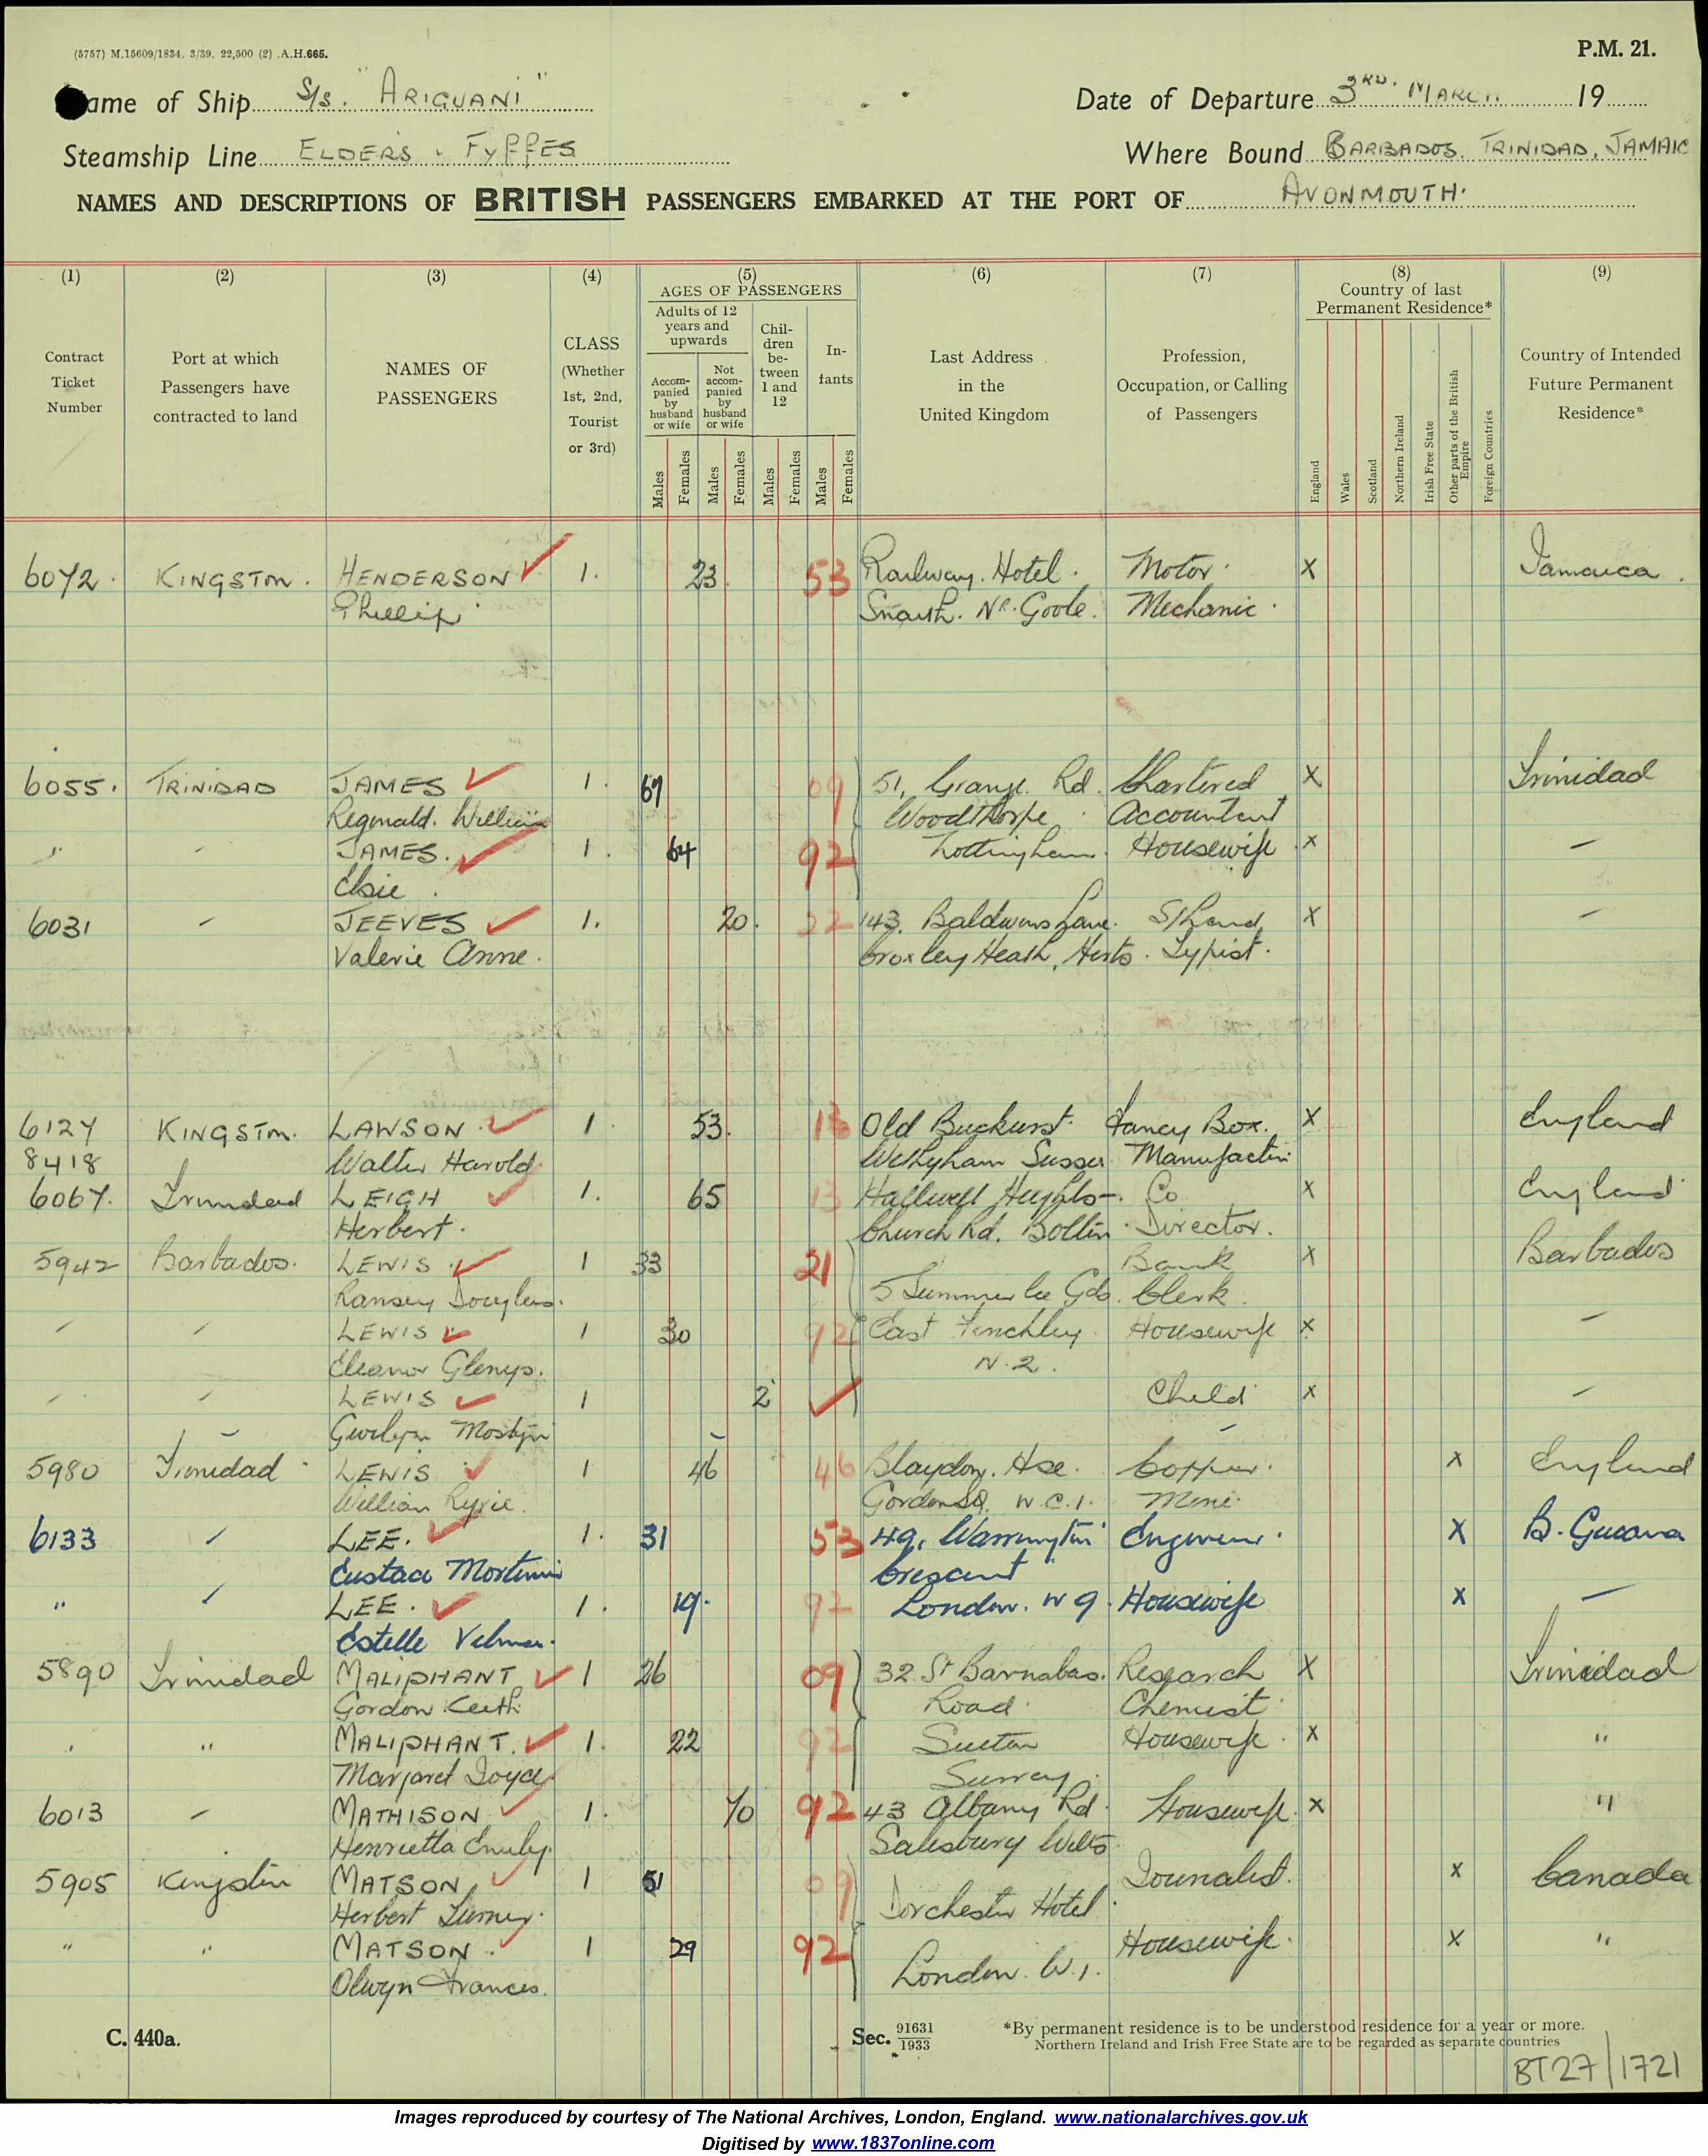 (5757) M.15609/1834. 3/39. 22,500 (2) .A.H.665.
P.M. 21.
Name of Ship S/S. "ARIGUANI"
Date of Departure 3RD. MARCH 19
Steamship Line ELDERS & FYFFES
Where Bound BARBADOS. TRINIDAD, JAMAIC
NAMES AND DESCRIPTIONS OF BRITISH PASSENGERS EMBARKED AT THE PORT OF AVONMOUTH.
(1) (2) (3) (4) (5) (6) (7) (8) (9)
Contract Ticket Number
Port at which Passengers have contracted to land
NAMES OF PASSENGERS
CLASS (Whether 1st, 2nd, Tourist or 3rd)
AGES OF PASSENGERS
Adults of 12 years and upwards
Accompanied by husband or wife
Not accompanied by husband or wife
Children between 1 and 12
Infants
Males Females Males Females Males Females Males Females
Last Address in the United Kingdom
Profession, Occupation, or Calling of Passengers
Country of last Permanent Residence*
England Wales Scotland Northern Ireland Irish Free State Other parts of the British Empire Foreign Countries
Country of Intended Future Permanent Residence*
6072. KINGSTON. HENDERSON 1. 23. 53 Railway. Hotel. Motor. X Jamaica.
Phillip Snaith. Nr. Goole. Mechanic.
6055. TRINIDAD JAMES 1. 69 09 51, Grange Rd. Chartered X Trinidad
Reginald. William Woodthorpe Accountant
" - JAMES. 1. 64 92 Nottingham. Housewife X -
Elsie.
6031 - JEEVES 1. 20. 22 143. Baldwins Lane. S/hand X -
Valerie Anne. Croxley Heath, Herts. Typist.
6127 KINGSTON. LAWSON. 1. 53. 13 Old Buckurst. Fancy Box. X England
8418 Walter Harold. Withyham Sussex Manufacturer
6067. Trinidad LEIGH 1. 65 13 Co X England
Herbert. Church Rd. Bolton. Director.
5942 Barbados. LEWIS 1 33 21 Bank X Barbados
Ransey Douglas. 5 Summerlee Gds. Clerk.
- - LEWIS 1 30 92 East Finchley. Housewife X -
Eleanor Glenys. N.2.
- - LEWIS 1 2 Child X -
Gwilym Mostyn
5980 Trinidad LEWIS 1 46 46 Blaydon. Hse. Copper. X England
William Ryrie. Gordon Sq. W.C.1. Mine.
6133 - LEE. 1. 31 53 49, Warrington Engineer. X B. Guiana
Eustace Mortimer Crescent
" - LEE. 1. 19. 92 London. W9. Housewife X -
Estelle Velma.
5890 Trinidad MALIPHANT 1 26 09 32 St Barnabas. Research X Trinidad
Gordon Keith Road. Chemist
" " MALIPHANT. 1. 22 92 Sutton Housewife. X "
Margaret Joyce. Surrey.
6013 - MATHISON 1. 70 92 43 Albany Rd. Housewife. X "
Henrietta Emily. Salisbury Wilts
5905 Kingston MATSON 1 51 09 Journalist. X Canada
Herbert Turner. Dorchester Hotel.
" " MATSON. 1 29 92 Housewife. X "
Olwyn Frances. London. W.1.
C. 440a.
Sec. 91631/1933
*By permanent residence is to be understood residence for a year or more.
Northern Ireland and Irish Free State are to be regarded as separate countries
BT27/1721
Images reproduced by courtesy of The National Archives, London, England. www.nationalarchives.gov.uk
Digitised by www.1837online.com